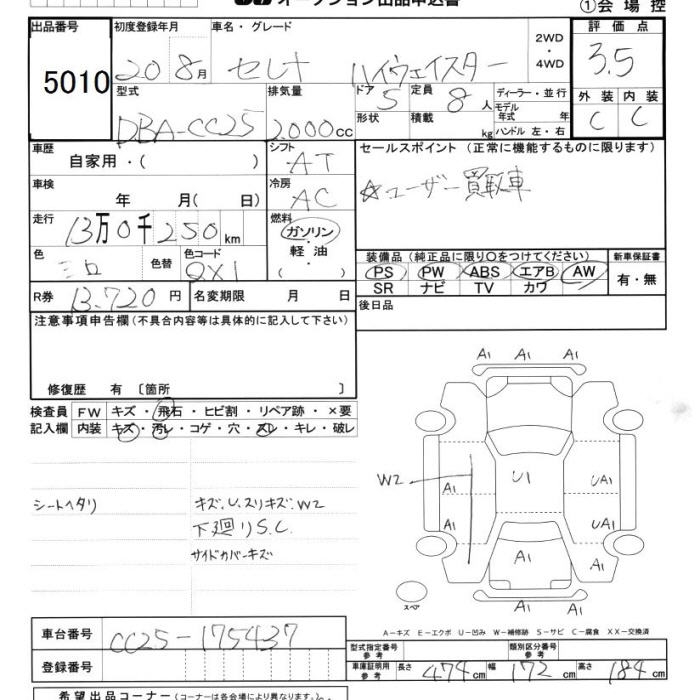 オークション出品申込書
①会場控
出品番号 5010
初度登録年月 20 8月
車名・グレード セレナ ハイウェイスター
2WD・4WD
評価点 3.5
外装 C 内装 C
型式 DBA-CC25
排気量 2,000cc
ドア 5 形状
定員 8人 積載 kg
ディーラー・並行
モデル年式 年
ハンドル 左・右
車歴 自家用・( )
シフト AT
セールスポイント (正常に機能するものに限ります)
☆ユーザー買取車
車検 年 月( 日)
冷房 AC
走行 13万0千250km
燃料 ガソリン・軽油・( )
色 シロ 色替 色コード QX1
装備品 (純正品に限り○をつけてください)
PS PW ABS エアB AW
SR ナビ TV カワ
新車保証書 有・無
R券 13,720円 名変期限 月 日
後日品
注意事項申告欄 (不具合内容等は具体的に記入して下さい)
修復歴 有 〔箇所 〕
検査員記入欄
FW キズ・飛石・ヒビ割・リペア跡・×要
内装 キズ・汚レ・コゲ・穴・スレ・キレ・破レ
シートヘタリ
キズ、U、スリキズ、W2
下廻りS.C.
サイドカバーキズ
A1 A1 A1
W2 U1
A1 UA1
A1 UA1
A1 A1 A1
A1 A1 A1
スペア
A―キズ E―エクボ U―凹み W―補修跡 S―サビ C―腐食 XX―交換済
車台番号 CC25-175437
登録番号
型式指定番号 参考 類別区分番号 参考
車庫証明用 参考 長さ 474cm 幅 172cm 高さ 184cm
希望出品コーナー (コーナーは各会場により異なります。)